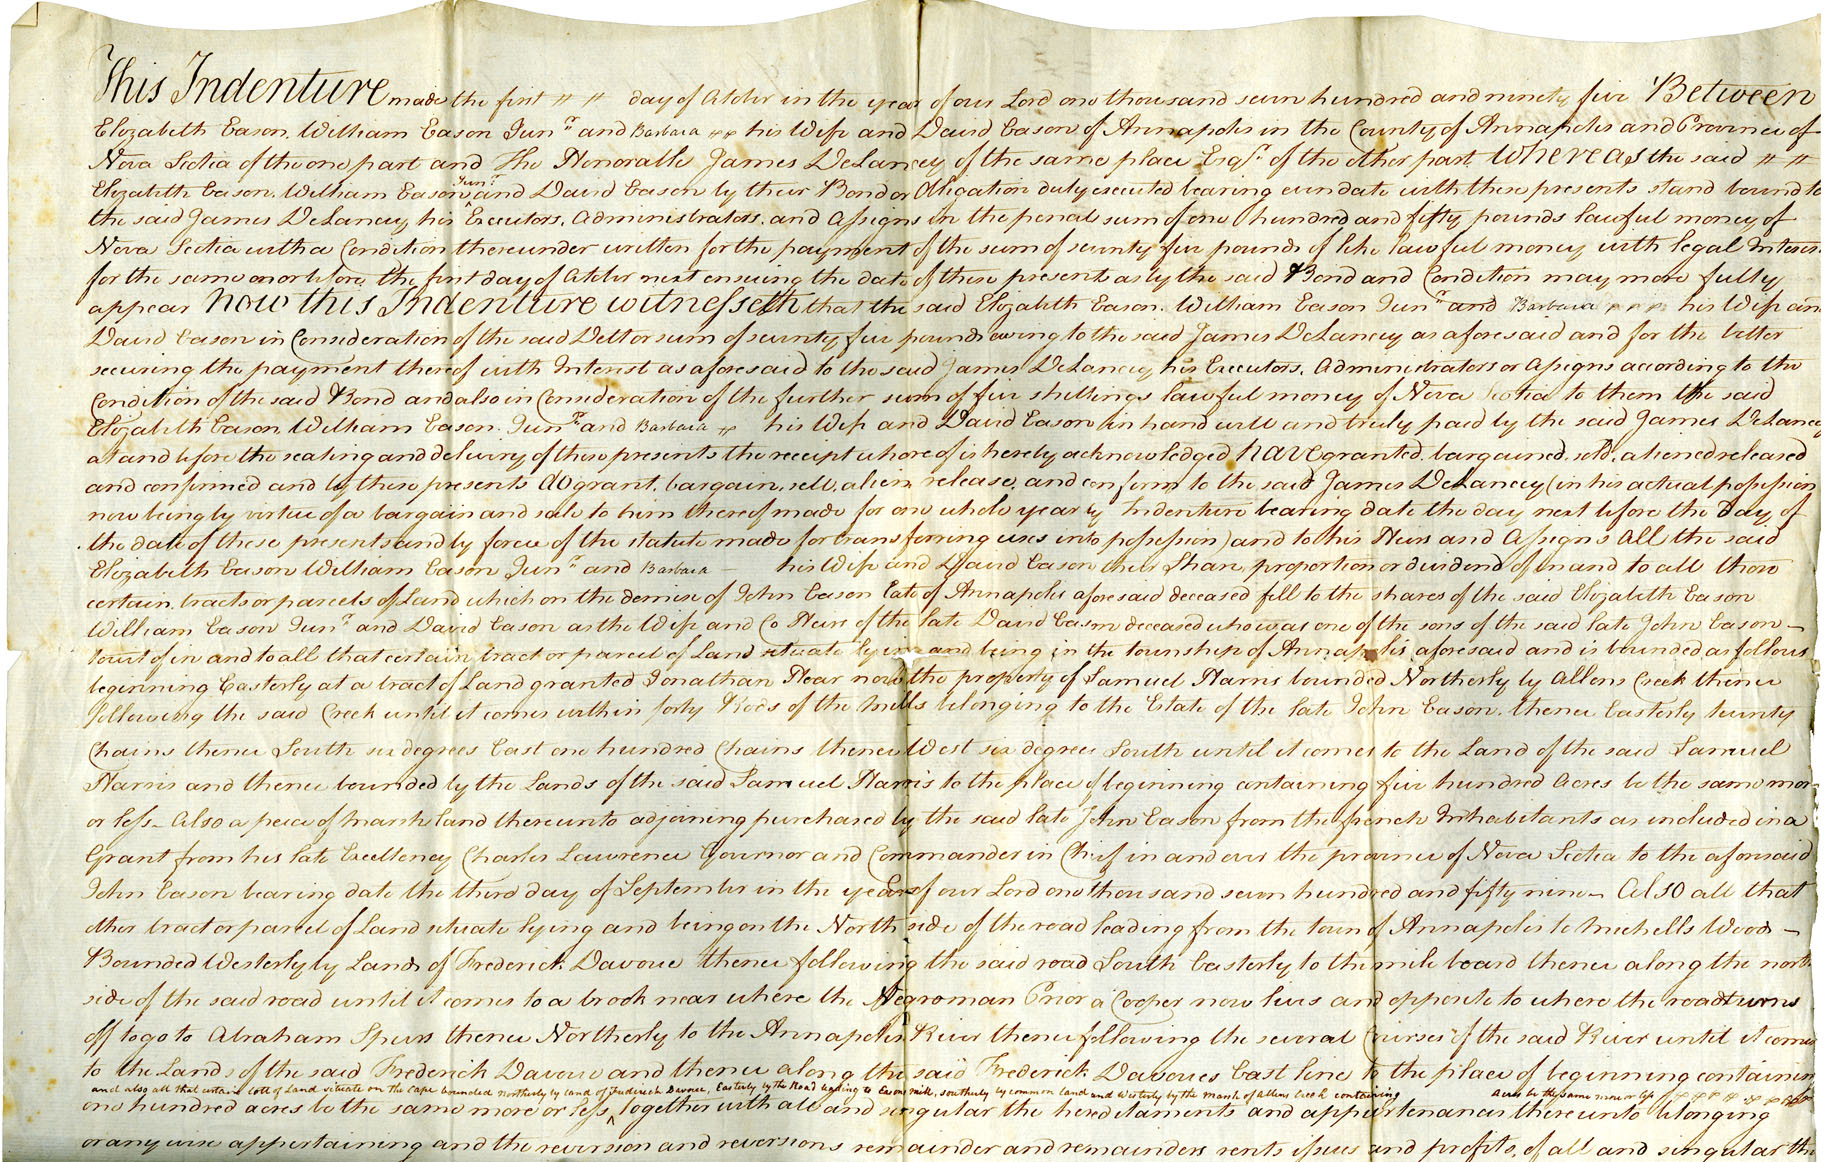 This Indenture made the first day of October in the year of our Lord one thousand seven hundred and ninety five Between
Elizabeth Eason, William Eason Junr. and Barbara his Wife and David Eason of Annapolis in the County of Annapolis and Province of
Nova Scotia of the one part and The Honorable James DeLancey of the same place Esqr. of the other part Whereas the said
Elizabeth Eason, William Eason Junr. and David Eason by their Bond or Obligation duly executed bearing even date with these presents stand bound to
the said James DeLancey, his Executors, Administrators, and Assigns in the penal sum of one hundred and fifty pounds lawful money of
Nova Scotia with a Condition thereunder written for the payment of the sum of seventy five pounds of like lawful money with legal Interest
for the same on or before the first day of October next ensuing the date of these presents as by the said Bond and Condition may more fully
appear Now this Indenture witnesseth that the said Elizabeth Eason, William Eason Junr. and Barbara his Wife and
David Eason in Consideration of the said Debt or sum of seventy five pounds owing to the said James DeLancey as aforesaid and for the better
securing the payment thereof with Interest as aforesaid to the said James DeLancey his Executors, Administrators or Assigns according to the
Condition of the said Bond and also in Consideration of the further sum of five shillings lawful money of Nova Scotia to them the said
Elizabeth Eason, William Eason Junr. and Barbara his Wife and David Eason in hand well and truly paid by the said James DeLancey
at and before the sealing and delivery of these presents the receipt whereof is hereby acknowledged have granted, bargained, sold, aliened released
and confirmed and by these presents do grant, bargain, sell, alien, release, and confirm to the said James DeLancey (in his actual possession
now being by virtue of a bargain and sale to him thereof made for one whole year by Indenture bearing date the day next before the Day of
the date of these presents and by force of the statute made for transferring uses into possession) and to his Heirs and Assigns All the said
Elizabeth Eason William Eason Junr. and Barbara his Wife and David Eason their Share, proportion or dividend of in and to all those
certain tracts or parcels of Land which on the demise of John Eason late of Annapolis aforesaid deceased fell to the shares of the said Elizabeth Eason
William Eason Junr. and David Eason as the Wife and Co Heirs of the late David Eason deceased who was one of the sons of the said late John Eason
to wit of in and to all that certain tract or parcel of Land situate lying and being in the township of Annapolis aforesaid and is bounded as follows
beginning Easterly at a tract of Land granted Jonathan Hoar now the property of Samuel Harris bounded Northerly by Allens Creek thence
following the said Creek until it comes within forty Rods of the Mills belonging to the Estate of the late John Eason, thence Easterly twenty
Chains thence South six degrees East one hundred Chains thence West six degrees South until it comes to the Land of the said Samuel
Harris and thence bounded by the Lands of the said Samuel Harris to the place of beginning containing five hundred Acres be the same more
or less Also a peice of marsh land thereunto adjoining purchased by the said late John Eason from the french Inhabitants as included in a
Grant from his late Excellency Charles Lawrence Governor and Commander in Chief in and over the province of Nova Scotia to the aforesaid
John Eason bearing date the third day of September in the year of our Lord one thousand seven hundred and fifty nine Also all that
other tract or parcel of Land situate lying and being on the North side of the road leading from the town of Annapolis to Michells Wood
Bounded Westerly by Lands of Frederick Davoue thence following the said road South Easterly to the mile board thence along the north
side of the said road until it comes to a brook near where the Negroman Prior a Cooper now lives and opposite to where the road turns
off to go to Abraham Spurrs thence Northerly to the Annapolis River thence following the several Courses of the said River until it comes
to the Lands of the said Frederick Davoue and thence along the said Frederick Davoues East line to the place of beginning containing
and also all that certain lott of Land situate on the Cape bounded Northerly by Land of Fredrick Davoue, Easterly by the Road leading to Easons mill, southerly by common land and Westerly by the Marsh of Allens Creek containing acres be the same more or less
one hundred acres be the same more or less, Together with all and singular the hereditaments and appurtenances thereunto belonging
or any wise appertaining and the reversion and reversions remainder and remainders rents issues and profits, of all and singular the